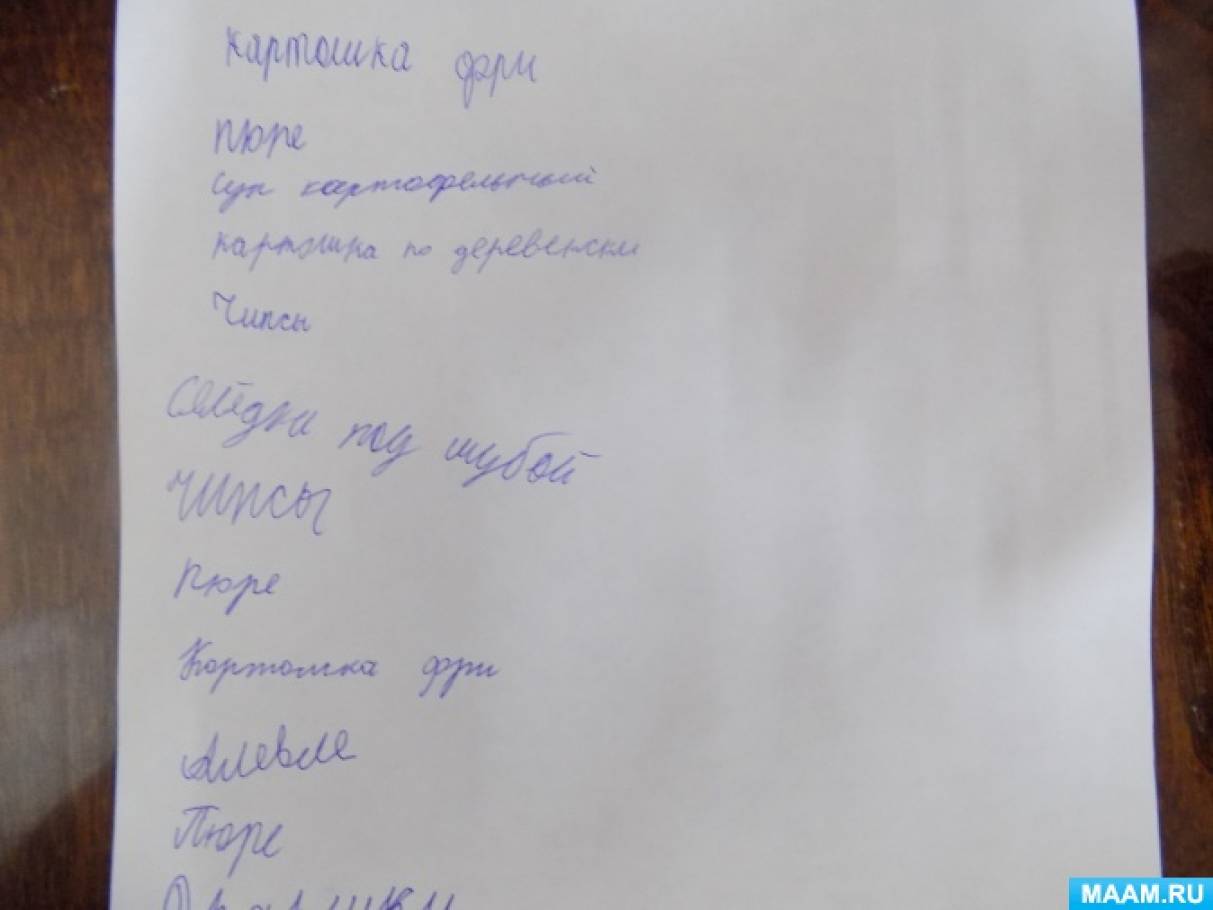 картошка фри
пюре
Суп картофельный
картошка по деревенски
Чипсы
Селёдка под шубой
Чипсы
Пюре
Картошка фри
Алевле
Пюре
MAAM.RU